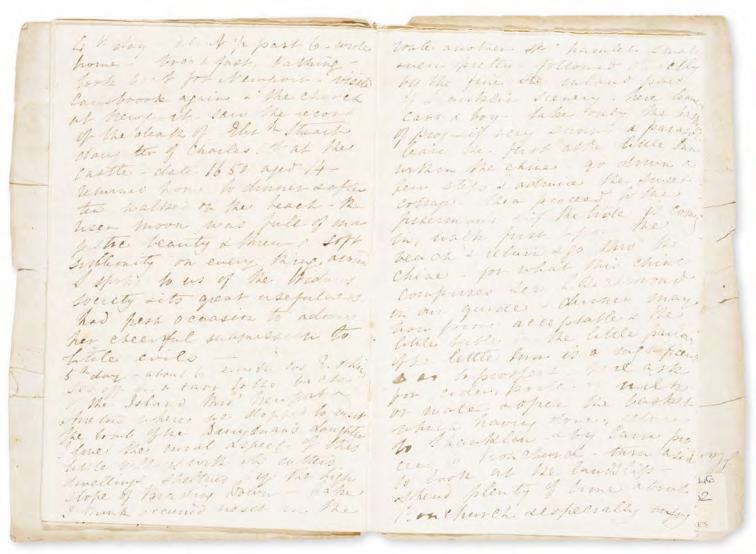 4th day - went 1/2 past 6 - wrote
home - breakfast, bathing -
took boat for Newport - visited
Carisbrook again & the church
at Newport saw the record
of the death of Elizth Stuart
daughter of Charles 1st at the
Castle - date 1650 aged 14 -
returned home to dinner & after
tea walked on the beach - the
risen moon was full of ma
jestic beauty & threw a soft
sublimity on every thing,
I spoke to us of the Widows
society & its great usefulness
had fresh occasion to admire
her cheerful submission to
little evils -
5th day - about 6
in a car to the
of the Island thro' Newport
where we stopped to visit
the tomb of the Dairyman's daughter
love the rural aspect of this
little village with its
dwellings sheltered by the high
slope of Brading Down - take
I think second novel in the
route another st. hamlet small
even pretty - followed directly
by the fine inland part
of Shanklin scenery - here leave
car & boy - take only the bas
of prog - if very sunny a parasol
leave the first at the little Inn
within the chine go down a
few steps & admire the sweet
cottage - then proceed to the
fisherman's - if the tide is com
in, walk first upon the
beach & return & go thro' the
chine - for what this chine
comprises
in our guide - dinner may
now prove acceptable & the
little table in the little parlour
of the little Inn is a nice place
to ask
for cider, milk
or water & open the basket
which having done, return
to Shanklin & by Cam pro
ceed to Bonchurch - turn aside
to look at the landslip -
spend plenty of time about
Bonchurch & especially